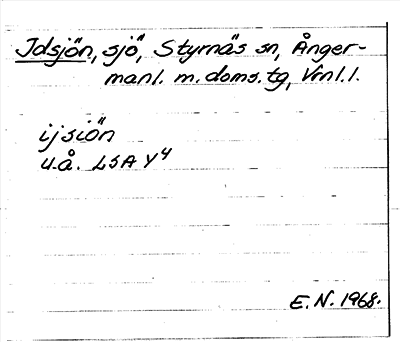 Idsjön, sjö, Styrnäs sn, Ånger-
manl. m. doms. tg, Vrnl. l.
ijsiön
u.å. LSA Y4
E. N. 1968.